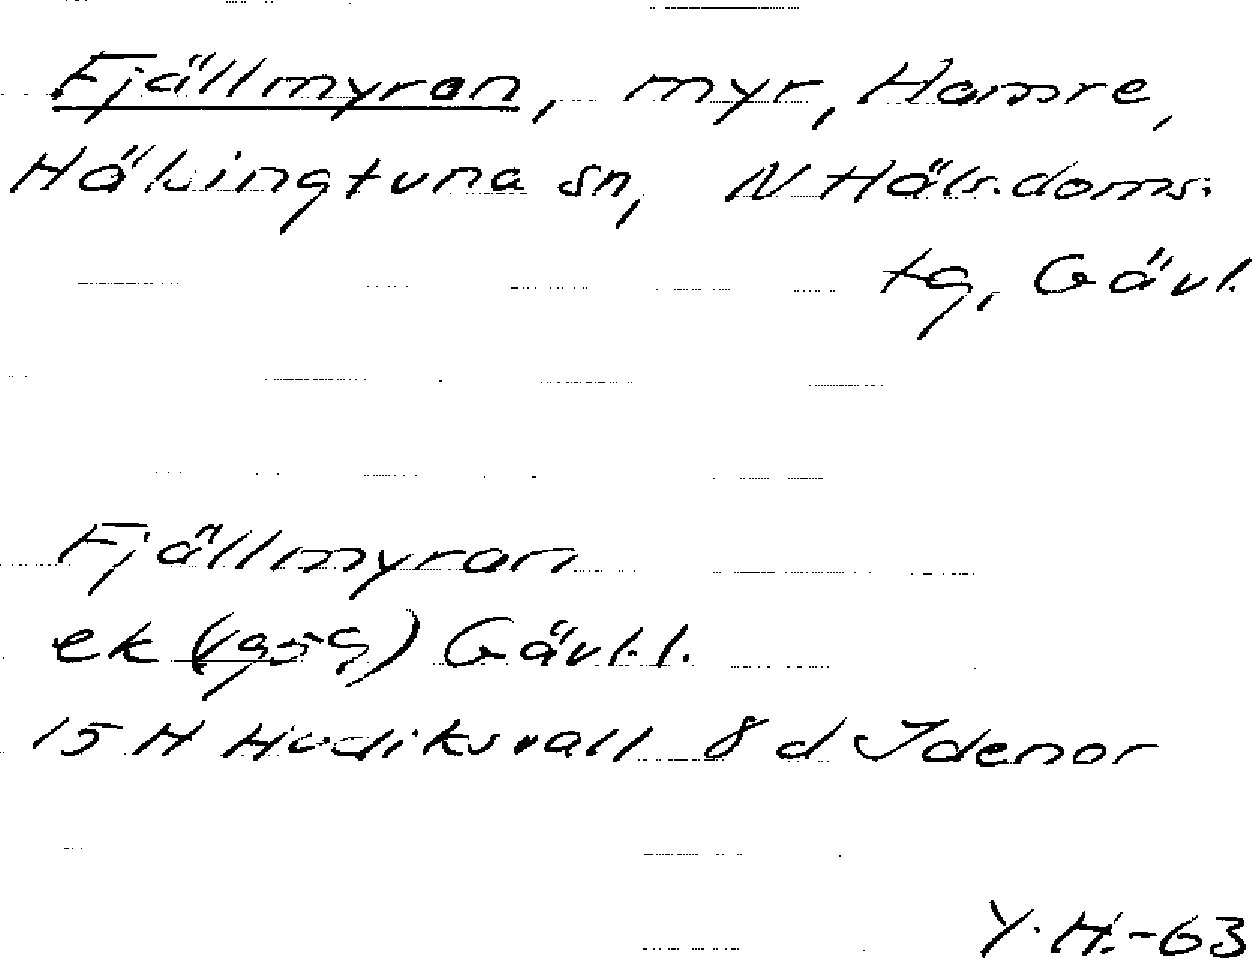 Fjällmyran, myr, Hamre,
Hälsingtuna sn, N Häls. doms.
tg, Gävl.
Fjällmyran
ek (1959) Gävl.l.
15 H Hudiksvall 8 d Idenor
Y.H.-63